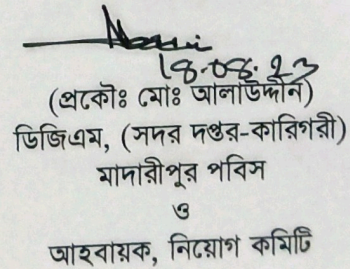 18-08-23
(প্রকৌঃ মোঃ আলাউদ্দীন)
ডিজিএম, (সদর দপ্তর-কারিগরী)
মাদারীপুর পবিস
ও
আহবায়ক, নিয়োগ কমিটি